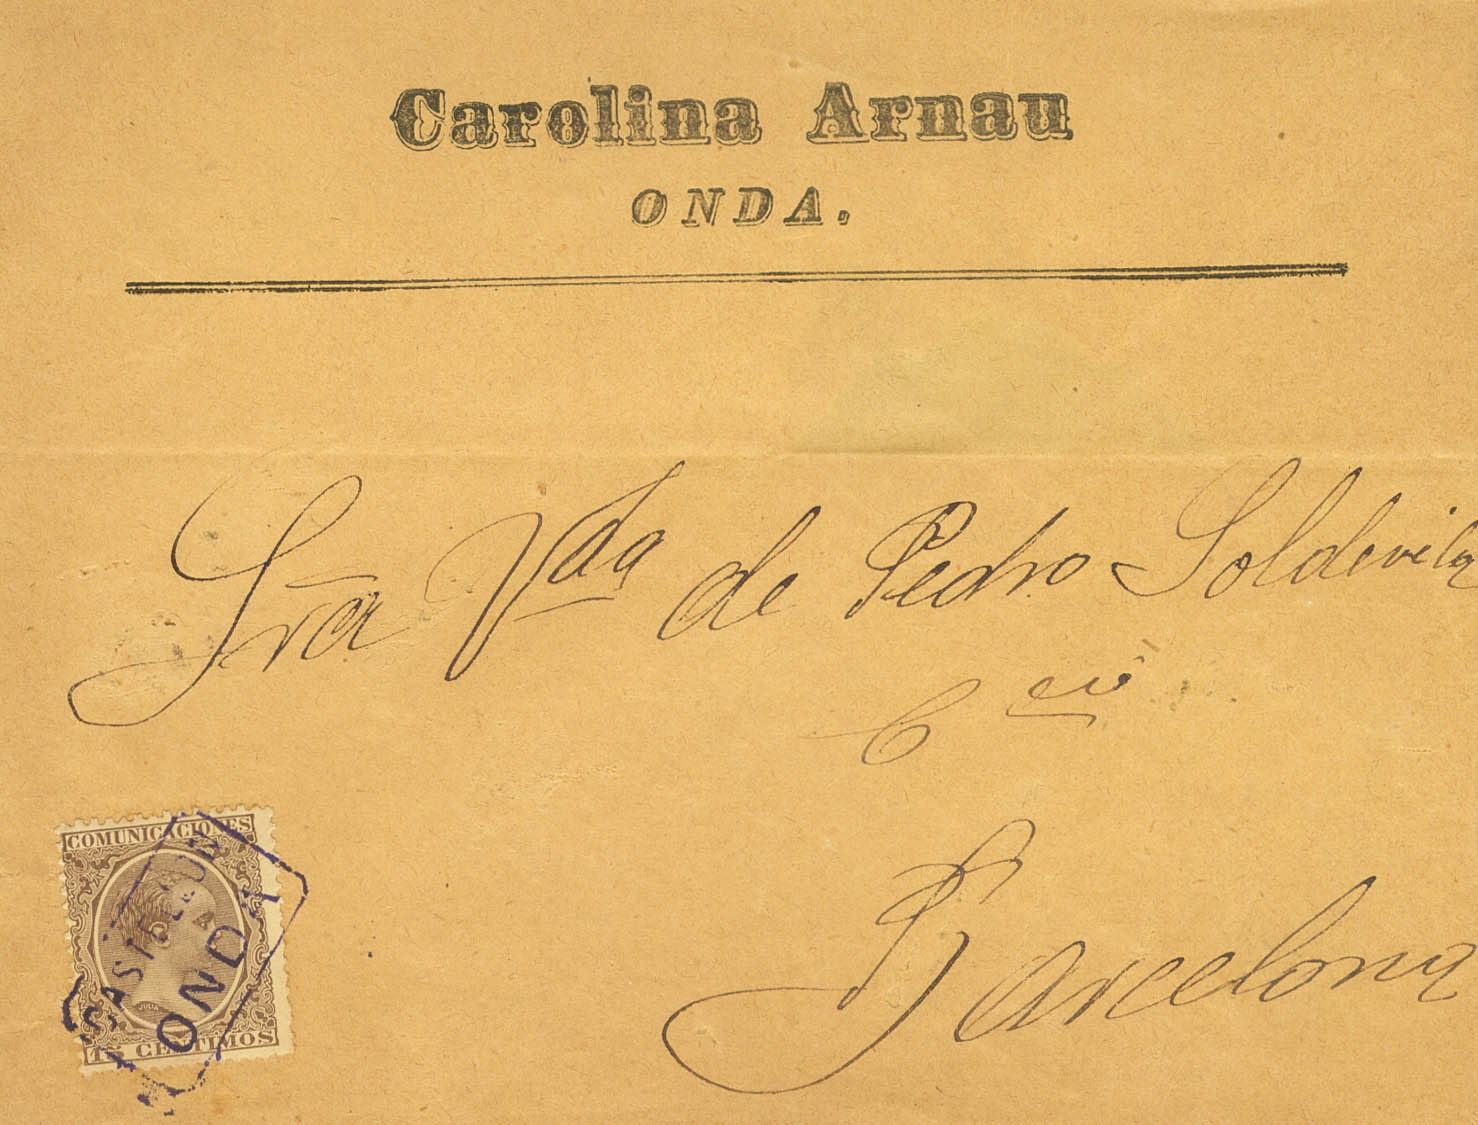 Carolina Arnau
ONDA.
Sra Vda de Pedro Soldevila
Cia
Barcelona
COMUNICACIONES
15 CENTIMOS
CASTELLON
ONDA